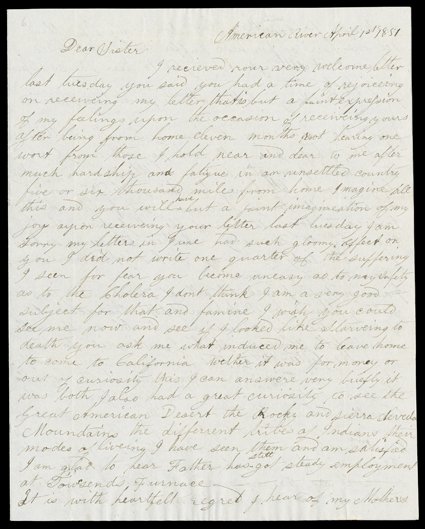 American River April 1st 1851
Dear Sister
I recieved your very welcome letter
last tuesday you said you had a time of rejoiceing
on receiveing my letter that is but a faint expression
of my feelings upon the occasion of receiveing yours
after being from home eleven months not hearing one
word from those I hold near and dear to me after
much hardship and fatigue in an unsettled country
five or six thousand miles from home Imagine all
this and you will have but a faint imagination of my
joy upon receiveing your letter last tuesday I am
sorry my letters in June had such gloomy effect on
you I did not write one quarter of the suffering
I seen for fear you become uneasy as to my safety
as to the Cholera I dont think I am a very good
subject for that and famine I wish you could
see me now and see if I looked like starveing to
death you ask me what induced me to leave home
to come to California wether it was for money or
out of curiosity this I can answere very briefly it
was both I also had a great curiosity to see the
Great American Desert the Rocki and Sierra Nevada
Mountains the different tribes of Indians their
modes of liveing I have seen them and am satisfied
I am glad to hear Father has got still steady employment
at Towsends Furnace
It is with heartfelt regret I hear of my Mothers